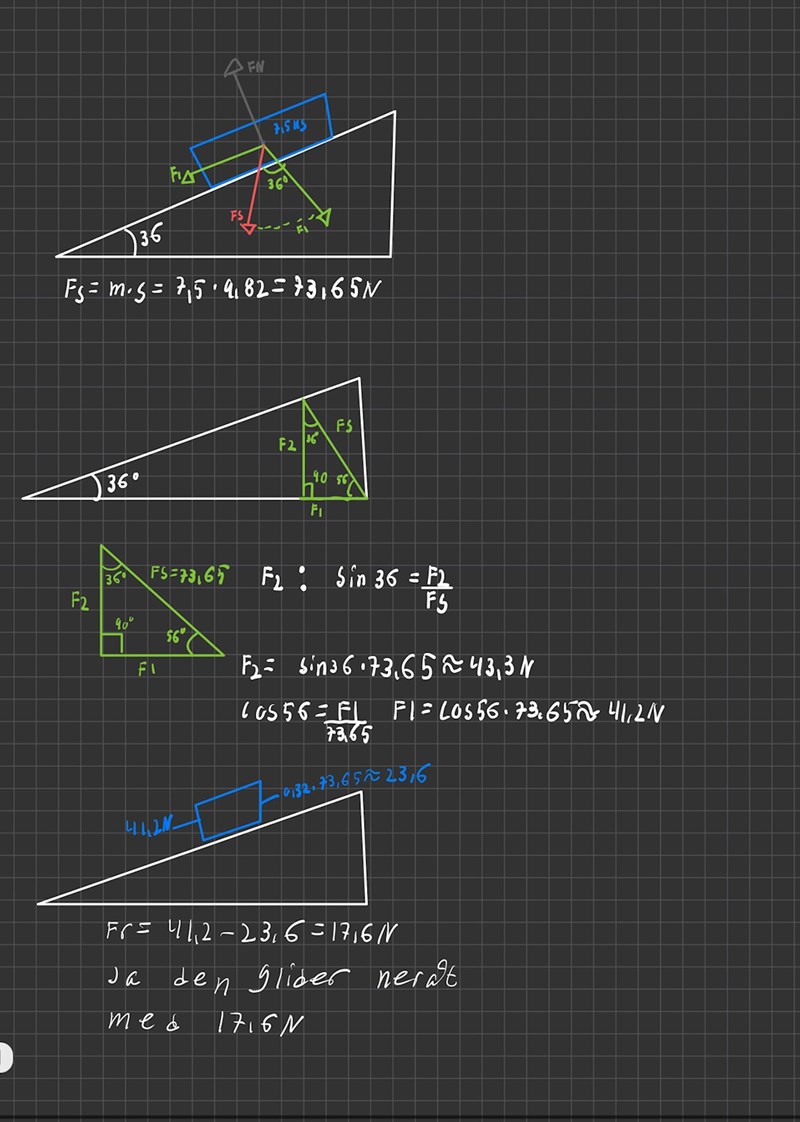 FN
7,5 kg
F1
36°
Fg
F1
36
Fg = m·g = 7,5 · 9,82 = 73,65N
36°
F2
Fg
36°
90
56
F1
36°
Fg=73,65
F2
90°
56°
F1
F2 : sin 36 = F2/Fg
F2 = sin36 · 73,65 ≈ 43,3N
cos56 = F1/73,65 F1 = cos56 · 73,65 ≈ 41,2N
0,32 · 73,65 ≈ 23,6
41,2N
Fr = 41,2 - 23,6 = 17,6N
Ja den glider neråt
med 17,6N